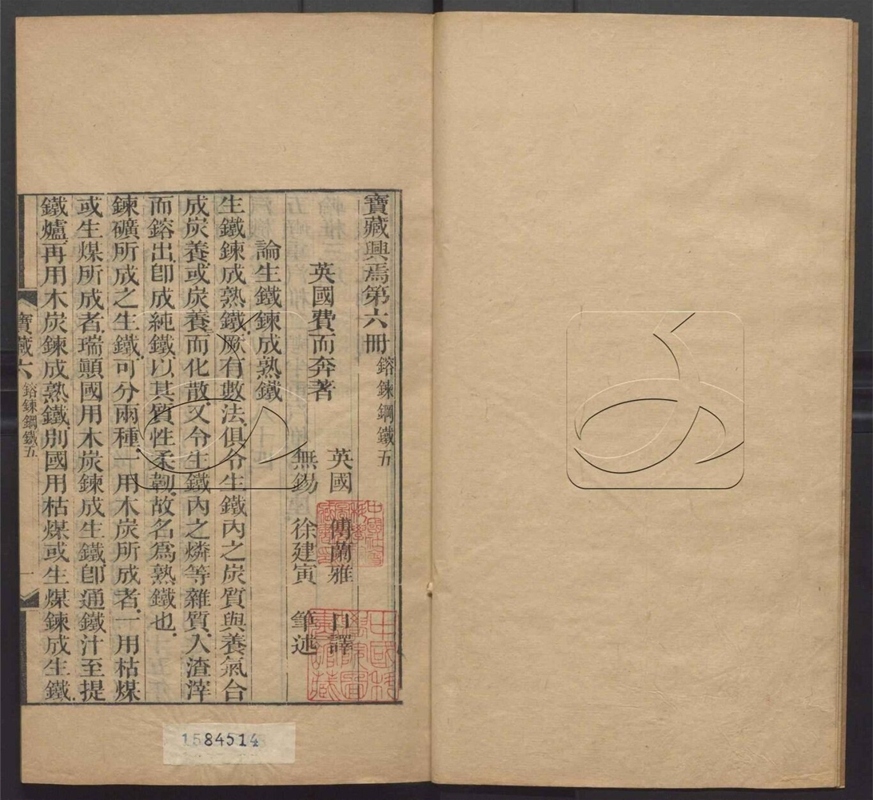 寶藏興焉第六冊 鎔鍊鋼鐵五
英國費而奔著
英國 傅蘭雅 口譯
無錫 徐建寅 筆述
論生鐵鍊成熟鐵
生鐵鍊成熟鐵厥有數法俱令生鐵內之炭質與養氣合
成炭養或炭養而化散又令生鐵內之燐等雜質入渣滓
而鎔出卽成純鐵以其質性柔韌故名爲熟鐵也
鍊礦所成之生鐵可分兩種一用木炭所成者一用枯煤
或生煤所成者瑞顛國用木炭鍊成生鐵卽通鐵汁至提
鐵爐再用木炭鍊成熟鐵別國用枯煤或生煤鍊成生鐵
寶藏六 鎔鍊鋼鐵五 一
1584514